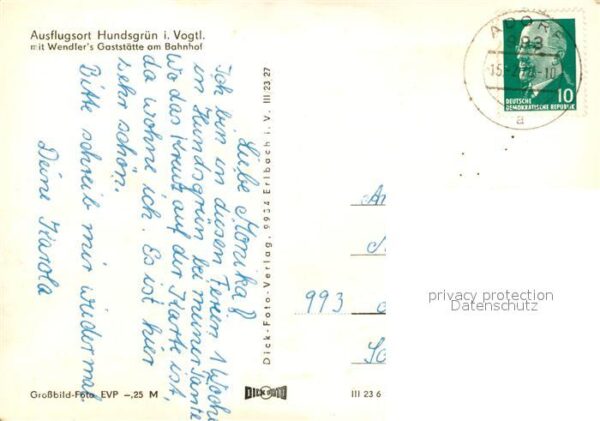 Ausflugsort Hundsgrün i. Vogtl.
mit Wendler's Gaststätte am Bahnhof
Liebe Monika!
Ich bin in diesen Ferien 1 Woche
in Hundsgrün bei meiner Tante
Wo das Kreuz auf der Karte ist,
da wohne ich. Es ist hier
sehr schön.
Bitte schreib mir wieder mal
Deine Karola
Großbild-Foto EVP -,25 M
Dick-Foto-Verlag, 9934 Erlbach i. V. III 23 27
DICK FOTO
III 23 6
ADORF
993
a
10
DEUTSCHE
DEMOKRATISCHE REPUBLIK
993
privacy protection
Datenschutz